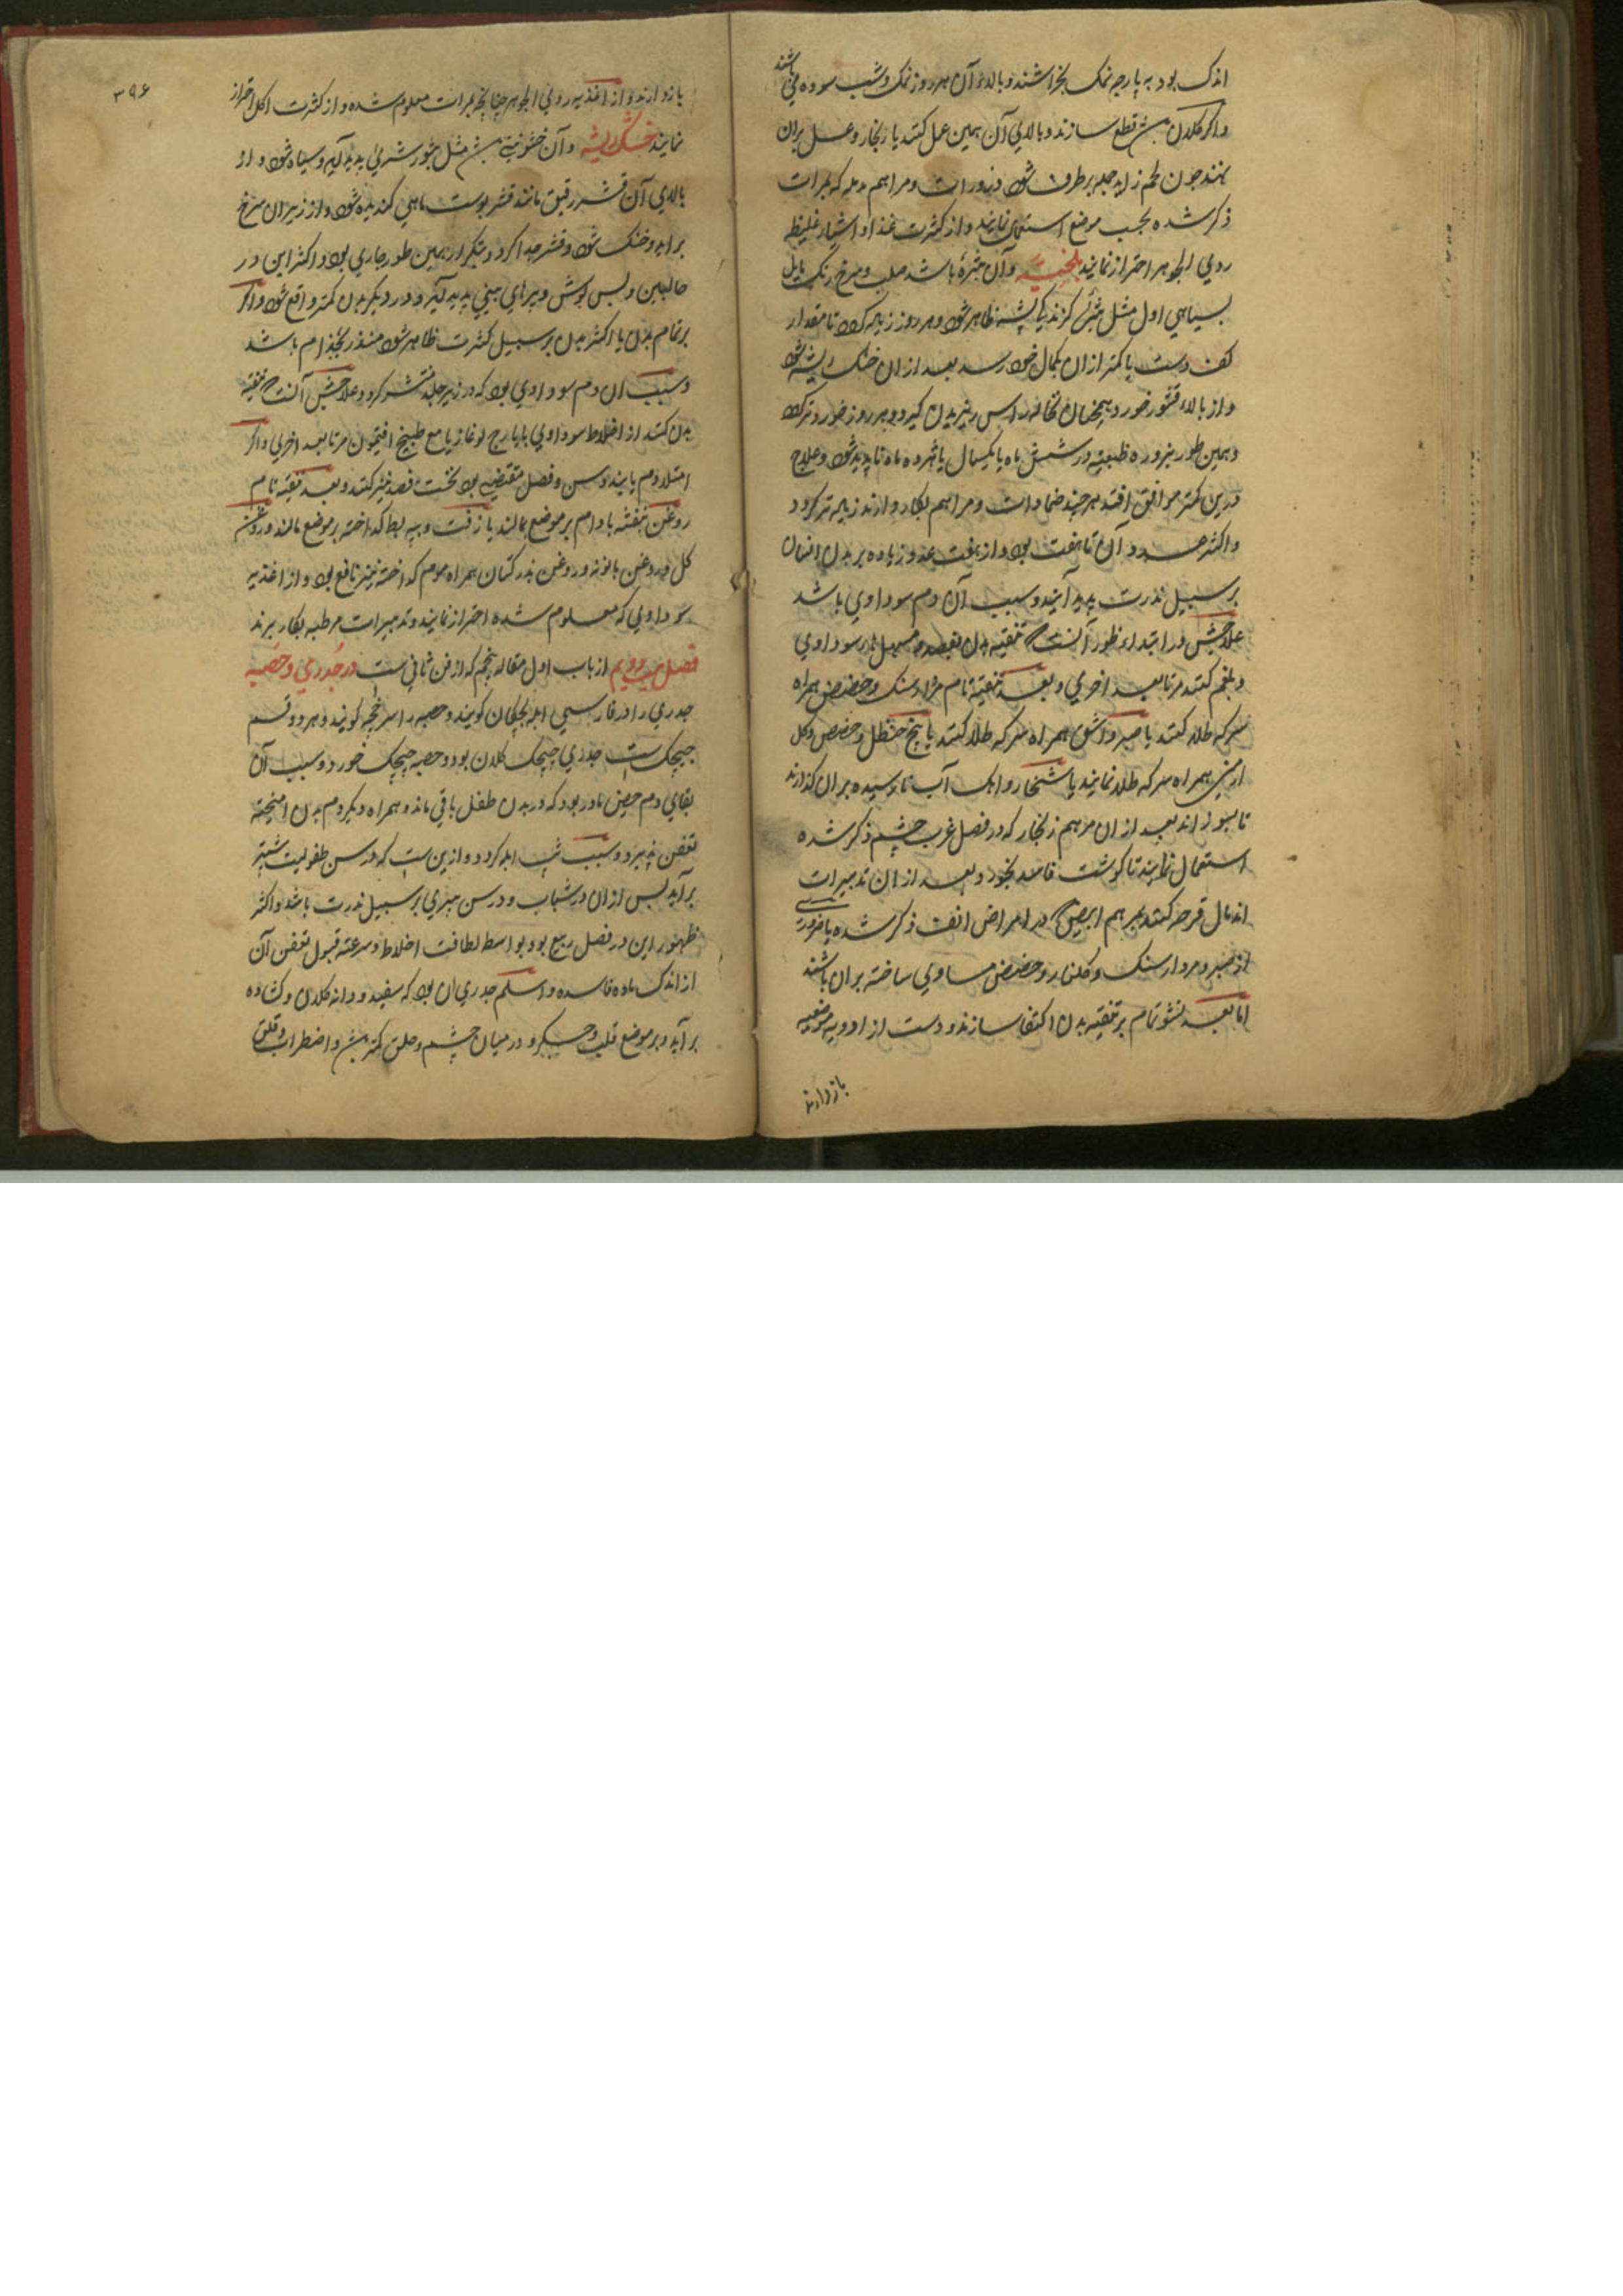 اندک بود به پارچه نمک بخراشند و بالاء آن هر روز نمک و شب سوده می باشند
و اگر کلان بش قطع سازند و بالای آن همین عمل کنند یا زنجار و عسل بران
نهند چون لحم زاید جمله برطرف شود ذرورات و مراهم مدمله که بمرات
ذکر شده بحسب موضع استعمال نمایند و از کثرت غذا و اشیاء غلیظه
ردی الجوهر احتراز نمایند بلخیه و آن بثرهٔ باشد صلب و سرخ رنگ مایل
بسیاهی اول مثل بثری گزندگی پشه ظاهر شود و هر روز زیاده گردد تا مقدار
کف دست یا کمتر از ان بکمال خود رسد بعد از ان خشک ریشه شود
و از بالاء قشور خورد همچنان نخاله راس ریزیدن گیرد و هر روز خورد و تر گردد
و همین طور بزور طبیعه در شش ماه یا یکسال یا نه و ده ماه ناپدید شود و علاج
درین کمتر موافق افتد هر چند ضمادات و مراهم بکار دارند زیاده تر گردد
و اکثر حدود آن تا هفت بود و از هفت عدد زیاده بر بدن انسان
بر سبیل ندرت پدید آیند و سبب آن دم سوداوی باشد
علاجش در ابتداء ظهور آنست که تنقیه بدن بفصد و مسهل سوداوی
و بلغم کنند مرة بعد اخری و بعد تنقیه تام مرداسنگ و حضض همراه
سرکه طلا کنند یا صبر و اشق همراه سرکه طلا کنند یا بیخ حنظل و حضض و گل
ارمنی همراه سرکه طلا نمایند یا شنجار و اهک آب نارسیده بران گذارند
تا بسوزاند بعد از ان مرهم زنجار که در فصل غرب چشم ذکر شده
استعمال نمایند تا گوشت فاسد بخورد و بعد از ان تدبیرات
اندمال قرحه کنند بمرهم ابیض که در امراض انف ذکر شده یا ذروری
از صبر و مردارسنگ و گلنار و حضض مساوی ساخته بران باشند
اما بعد نشو تمام بر تنقیه بدن اکتفا سازند و دست از ادویه موضعیه
باز دارند
۳۹۶
باز دارند و از اغذیه ردی الجوهر چنانچه بمرات معلوم شده و از کثرت اکل احتراز
نمایند خشک ریشه و آن خشونتی بش مثل بثور شری پدید آید و سیاه شود و از
بالای آن قشر رقیق مانند قشر پوست ماهی کنده شود و از زیر ان سرخ
براید و خشک شود و قشر جدا گردد و بتکرار همین طور جاری بود و اکثر این در
حالبین و پس گوش و پرهای بینی پدید آید و در دیگر بدن کمتر واقع شود و اگر
بر تمام بدن یا اکثر بدن بر سبیل کثرت ظاهر شود منذر بجذام باشد
و سبب ان دم سوداوی بود که در زیر جلد منتشر گردد و علاجش آنست که تنقیه
بدن کنند از اخلاط سوداوی بایارج لوغازیا مع طبیخ افتیمون مرة بعد اخری و اگر
امتلاء دم یابند و سن و فصل مقتضی بود نخست فصد نیز کنند و بعد تنقیه تام
روغن بنفشه بادام بر موضع بمالند یا زفت و پیه بط گداخته بر موضع مالند و روغن
گل و روغن بابونه و روغن بذر کتان همراه موم گداخته نیز نافع بود و از اغذیه
سوداوی که معلوم شده احتراز نمایند و تدبیرات مرطبه بکار برند
فصل بیست و دویم از باب اول مقاله پنجم که از فن ثانی ست در جدری و حصبه
جدری را در فارسی ابله بچکان گویند و حصبه را سرخجه گویند و هر دو قسم
چیچک ست جدری چیچک کلان بود و حصبه چیچک خورد و سبب آن
بقای دم حیض مادر بود که در بدن طفل باقی ماند و همراه دیگر دم بدن امیخته
تعفن پذیرد و سبب تپ ابله گردد و ازین ست که در سن طفولیت بیشتر
برآید پس از ان در شباب و در سن پیری بر سبیل ندرت باشد و اکثر
ظهور این در فصل ربیع بود بواسطه لطافت اخلاط و سرعة قبول تعفن آن
از اندک ماده فاسده و اسلم جدری ان بود که سفید و دانه کلان و کشاده
برآید و بر موضع قلب و جگر و در میان چشم و حلق کمتر بش و اضطراب و قلق